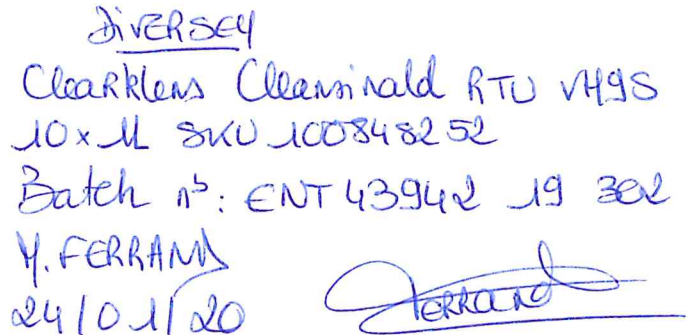 DiVERSEY
Clearklens Cleansinald RTU VH9S
10x1L SKU 100848252
Batch n°: ENT 43942 19 302
M. FERRAND
24/01/20 FERRAND